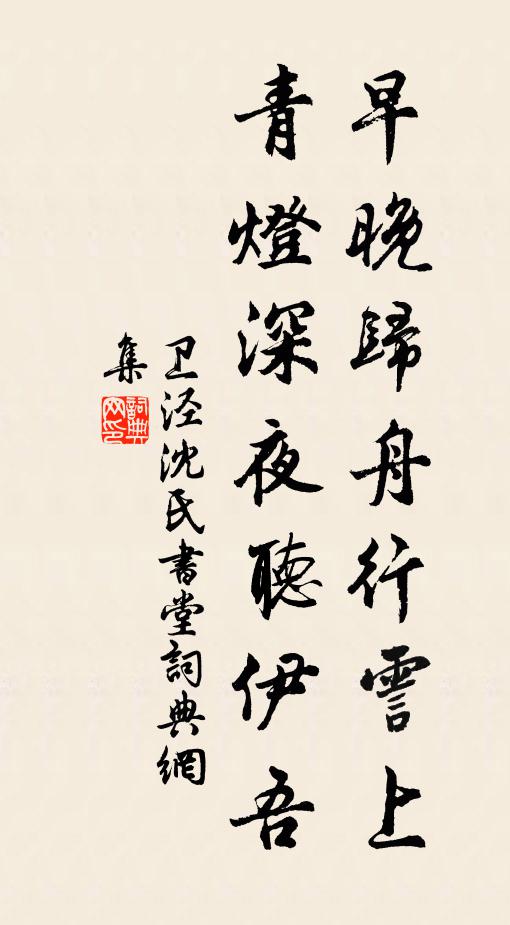 早晚歸舟行霅上
青燈深夜聽伊吾
卫泾沈氏書堂詞典網
集
詞典网印